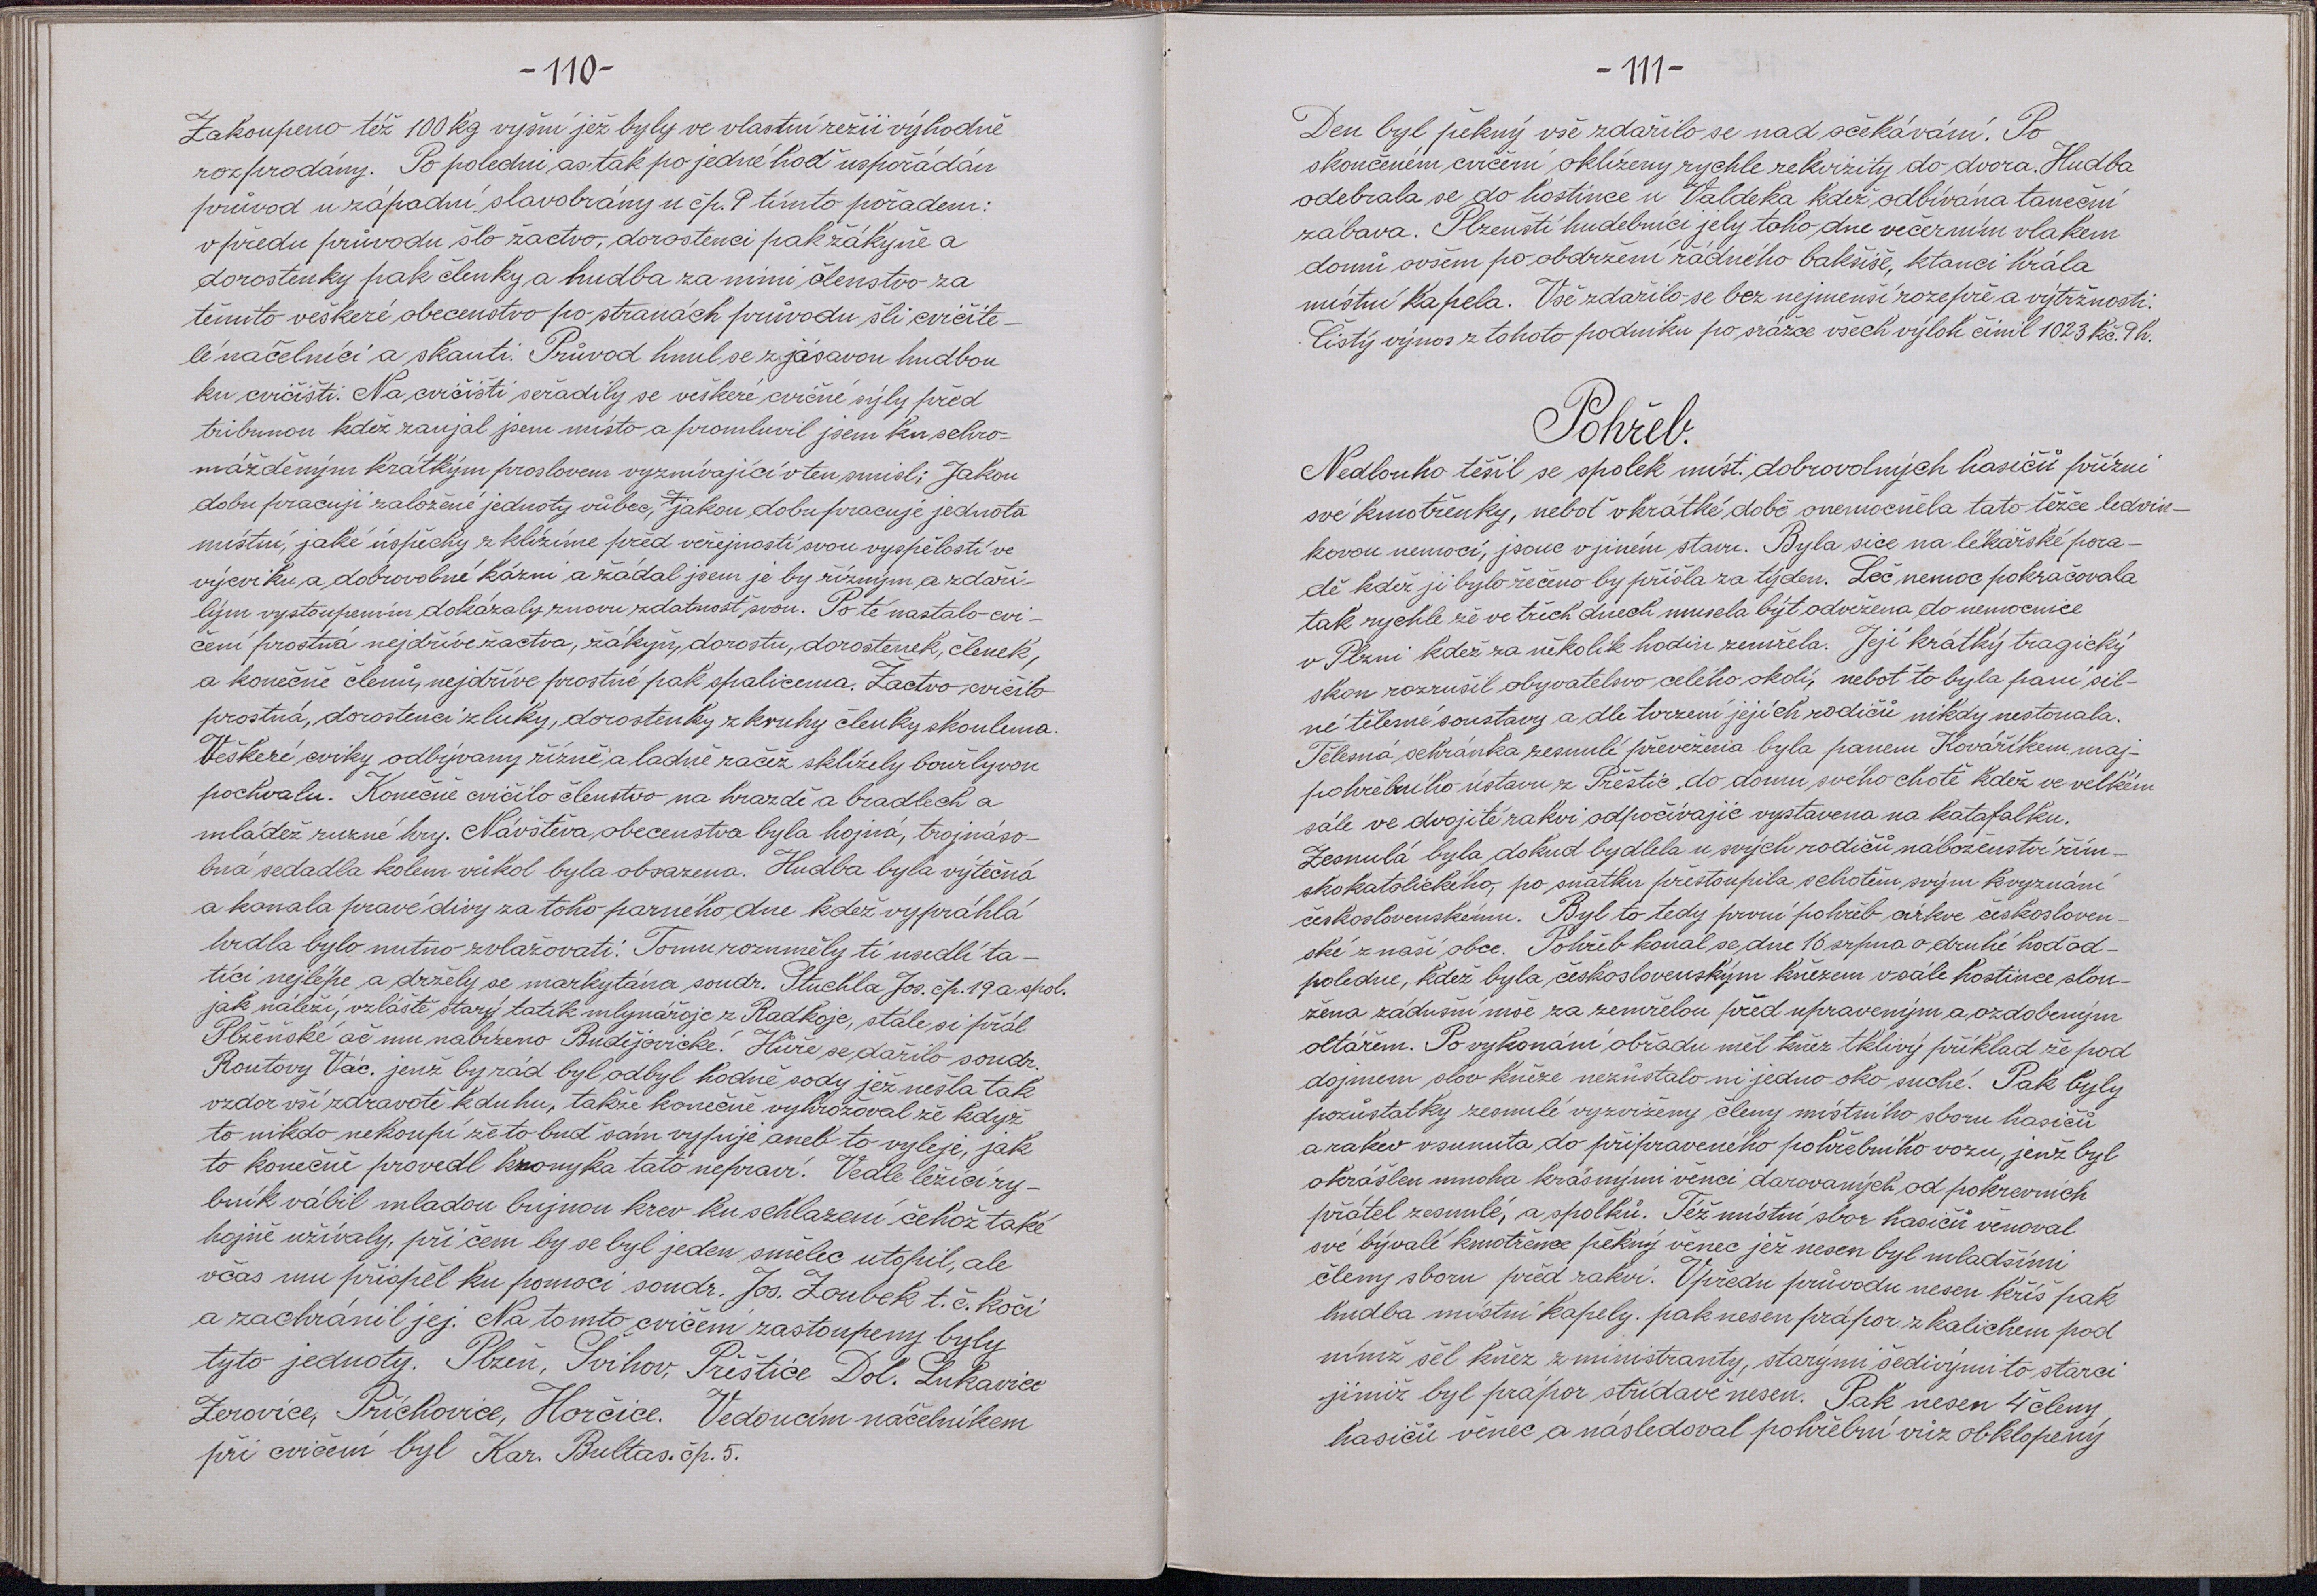 -110-
Zakoupeno též 100 kg vyšní jež byly ve vlastní režii výhodně
rozprodány. Po polední as tak po jedné hoď uspořádán
průvod u západní slavobrány u čp. 9 tímto pořadem:
v předu průvodu šlo žactvo, dorostenci pak žákyně a
dorostenky pak členky a hudba za nimi členstvo za
těmito veškeré obecenstvo po stranách průvodu šli cvičite-
lé náčelníci a skauti. Průvod hnul se z jásavou hudbou
ku cvičišti. Na cvičišti seřadily se veškeré cvičné sýly před
tribunou kdež zaujal jsem místo a promluvil jsem ku schro-
mážděným krátkým proslovem vyznívající v ten smisl; Jakou
dobu pracují založené jednoty vůbec, jakou dobu pracuje jednota
místní, jaké úspěchy zklízíme před veřejností svou vyspělostí ve
výcviku a dobrovolné kázni a žádal jsem je by řízným a zdaři-
lým vystoupením dokázaly znovu zdatnost svou. Po té nastalo cvi-
čení prostná nejdříve žactva, žákyň, dorostu, dorostenek, členek,
a konečně členů, nejdříve prostné pak spalicema. Žactvo cvičilo
prostná, dorostenci z luky, dorostenky z kruhy členky skoulema.
Veškeré cviky odbývany řízně a ladně začež sklízely bouřlyvou
pochvalu. Konečně cvičilo členstvo na hrazdě a bradlech a
mládež ruzné hry. Návštěva obecenstva byla hojná, trojnáso-
bná sedadla kolem vůkol byla obsazena. Hudba byla výtečná
a konala pravé divy za toho parného dne kdež vypráhlá
hrdla bylo nutno zvlažovati. Tomu rozuměly ti usedlí ta-
tíci nejlépe a držely se markytána soudr. Stuchla Jos. čp. 19 a spol.
jak náleží, vzláště starý tatík mlynářoje z Radkoje, stále si přál
Plzěňské ač mu nabízeno Budějovické. Hůře se dařilo soudr.
Routovy Vác. jenž by rád byl odbyl hodně sody jež nesla tak
vzdor vší zdravotě k duhu, takže konečně vyhrožoval že když
to nikdo nekoupí že to buď sám vypije aneb to vyleje, jak
to konečně provedl kronyka tato nepraví. Vedle ležící ry-
bník vábil mladou bujnou krev ku schlazení čehož také
hojně užívaly, při čem by se byl jeden smělec utopil, ale
včas mu přispěl ku pomoci soudr. Jos. Zoubek t.č. kočí
a zachránil jej. Na tomto cvičení zastoupeny byly
tyto jednoty. Plzeň, Švihov, Přeštice Dol. Lukavice
Žerovice, Příchovice, Horčice. Vedoucím náčelníkem
při cvičení byl Kar. Bultas. čp. 5.
-111-
Den byl pěkný vše zdařilo se nad očekávání. Po
skončeném cvičení oklízeny rychle rekvizity do dvora. Hudba
odebrala se do hostince u Valdeka kdež odbívána taneční
zábava. Plzenští hudebníci jely toho dne večerním vlakem
domů ovšem po obdržení řádného bakšiše, ktanci hrála
místní kapela. Vše zdařilo se bez nejmenší rozepře a výtržnosti.
Čistý výnos z tohoto podniku po srážce všech výloh činil 1023 Kč. 9 h.
Pohřeb.
Nedlouho těšil se spolek míst. dobrovolných hasičů přízni
své kmotřenky, neboť v krátké době onemocněla tato těžce ledvin-
kovou nemocí, jsouc v jiném stavu. Byla sice na lékařské pora-
dě kdež jí bylo řečeno by přišla za týden. Leč nemoc pokračovala
tak rychle že ve třích dnech musela být odvežena do nemocnice
v Plzni kdež za několik hodin zemřela. Její krátký tragický
skon rozrušil obyvatelsvo celého okolí, neboť to byla paní sil-
né tělemé soustavy a dle tvrzení jejích rodičů nikdy nestonala.
Tělesná schránka zesnulé převežena byla panem Kováříkem maj-
pohřebního ústavu z Přěštic do domu svého chotě kdež ve velkém
sále ve dvojité rakvi odpočívajíc vystavena na katafalku.
Zesnulá byla dokud bydlela u svých rodičů náboženství řím-
skokatolického, po sňatku přestoupila schotěm svým kvyznání
československému. Byl to tedy první pohřeb církve českosloven-
ské z naší obce. Pohřeb konal se dne 16 srpna o druhé hoď od-
poledne, kdež byla československým knězem v sále hostince slou-
žena zádušní mše za zemřelou před upraveným a ozdobeným
oltářem. Po vykonání obřadu měl kněz tklivý příklad že pod
dojmem slov kněze nezůstalo ni jedno oko suché. Pak byly
pozůstatky zesnulé vyzviženy členy místního sboru hasičů
a rakev vsunuta do připraveného pohřebního vozu, jenž byl
okrášlen mnoha krásnými věnci darovaných od pokrevních
přátel zesnulé, a spolků. Též místní sbor hasičů věnoval
své bývalé kmotřence pěkný věnec jež nesen byl mladšími
členy sboru před rakví. Vpředu průvodu nesen kříš pak
hudba místní kapely. pak nesen prápor z kalichem pod
nímž šel kněz z ministranty, starými šedivými to starci
jimiž byl prápor střídavě nesen. Pak nesen 4 členy
hasičů věnec a následoval pohřební vůz obklopený